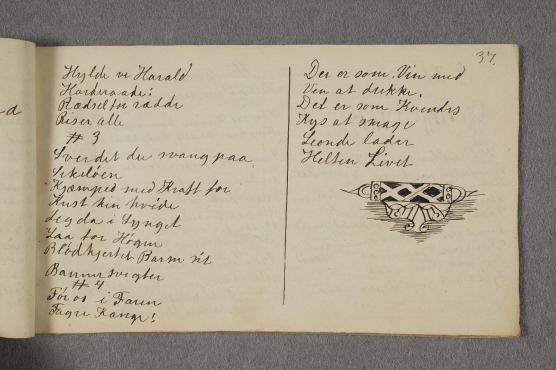 37.
Hylde vi Harald
Haarderaade!
Rædselfor rædde
Reiser alle
# 3
Sverdet du svang paa
Sikeløen
Kjæmped med Kraft for
Kust hin hvide
Leg da i Lynget
Laa for Høgni
Blødhjertet Barm sit
Banner svigter
# 4
För os i Faren
Fagre Kange!
Der er som Vin med
Ven at drikke.
Det er som Kvindes
Kys at smage
Leende lader
Helten Livet